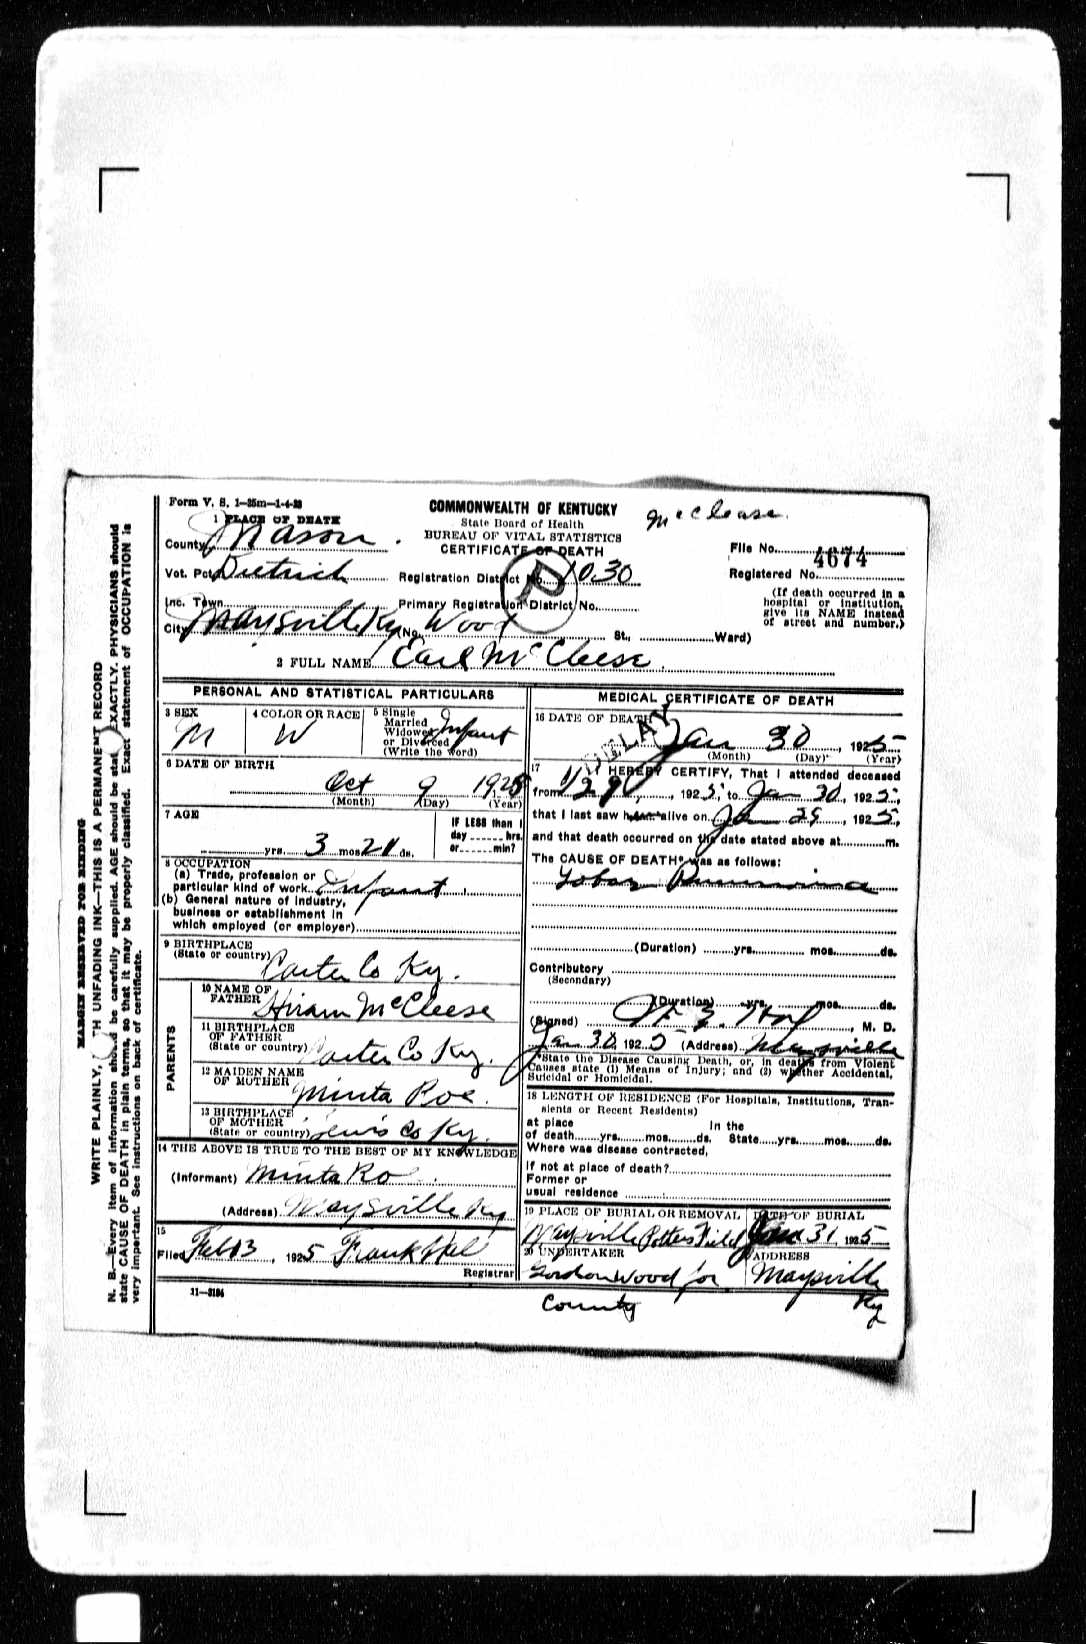 Form V. S. 1—25m—1-4-23
COMMONWEALTH OF KENTUCKY
State Board of Health
BUREAU OF VITAL STATISTICS
CERTIFICATE OF DEATH
McClease.
1 PLACE OF DEATH
County Mason.
Vot. Pct. Dietrich
Inc. Town
City Maysville Ky (No. Wood St., Ward)
Registration District No. 1030
Primary Registration District No.
File No. 4674
Registered No.
(If death occurred in a
hospital or institution,
give its NAME instead
of street and number.)
2 FULL NAME Earl McCleese.
PERSONAL AND STATISTICAL PARTICULARS
3 SEX
M
4 COLOR OR RACE
W
5 Single
Married
Widowed
or Divorced
(Write the word)
Infant
6 DATE OF BIRTH
Oct 9 192
(Month) (Day) (Year)
7 AGE
yrs. 3 mos. 21 ds.
IF LESS than 1
day hrs.
or min?
8 OCCUPATION
(a) Trade, profession or
particular kind of work Infant
(b) General nature of industry,
business or establishment in
which employed (or employer)
9 BIRTHPLACE
(State or country) Carter Co Ky.
PARENTS
10 NAME OF
FATHER Hiram McCleese
11 BIRTHPLACE
OF FATHER
(State or country) Carter Co Ky.
12 MAIDEN NAME
OF MOTHER Minta Roe.
13 BIRTHPLACE
OF MOTHER
(State or country) Lewis Co Ky.
14 THE ABOVE IS TRUE TO THE BEST OF MY KNOWLEDGE
(Informant) Minta Ro
(Address) Maysville Ky
15
Filed Feb 13, 1925 Frank
Registrar
11—3184
MEDICAL CERTIFICATE OF DEATH
16 DATE OF DEATH
DELAY
Jan 30, 1925
(Month) (Day) (Year)
17 I HEREBY CERTIFY, That I attended deceased
from 1/29, 1925, to Jan 30, 1925,
that I last saw h alive on Jan 29, 1925,
and that death occurred on the date stated above at m.
The CAUSE OF DEATH* was as follows:
Lobar Pneumonia
(Duration) yrs. mos. ds.
Contributory
(Secondary)
(Duration) yrs. mos. ds.
(Signed) , M. D.
Jan 30, 1925 (Address) Maysville
*State the Disease Causing Death, or, in deaths from Violent
Causes state (1) Means of Injury; and (2) whether Accidental,
Suicidal or Homicidal.
18 LENGTH OF RESIDENCE (For Hospitals, Institutions, Tran-
sients or Recent Residents)
at place In the
of death yrs. mos. ds. State yrs. mos. ds.
Where was disease contracted,
if not at place of death?
Former or
usual residence
19 PLACE OF BURIAL OR REMOVAL
Maysville Potters Field
DATE OF BURIAL
Jan 31, 1925
20 UNDERTAKER
Gordon Wood for
County
ADDRESS
Maysville
Ky
MARGIN RESERVED FOR BINDING
WRITE PLAINLY, TH UNFADING INK—THIS IS A PERMANENT RECORD
N. B.—Every item of information should be carefully supplied. AGE should be stat EXACTLY. PHYSICIANS should
state CAUSE OF DEATH in plain terms, so that it may be properly classified. Exact statement of OCCUPATION is
very important. See instructions on back of certificate.